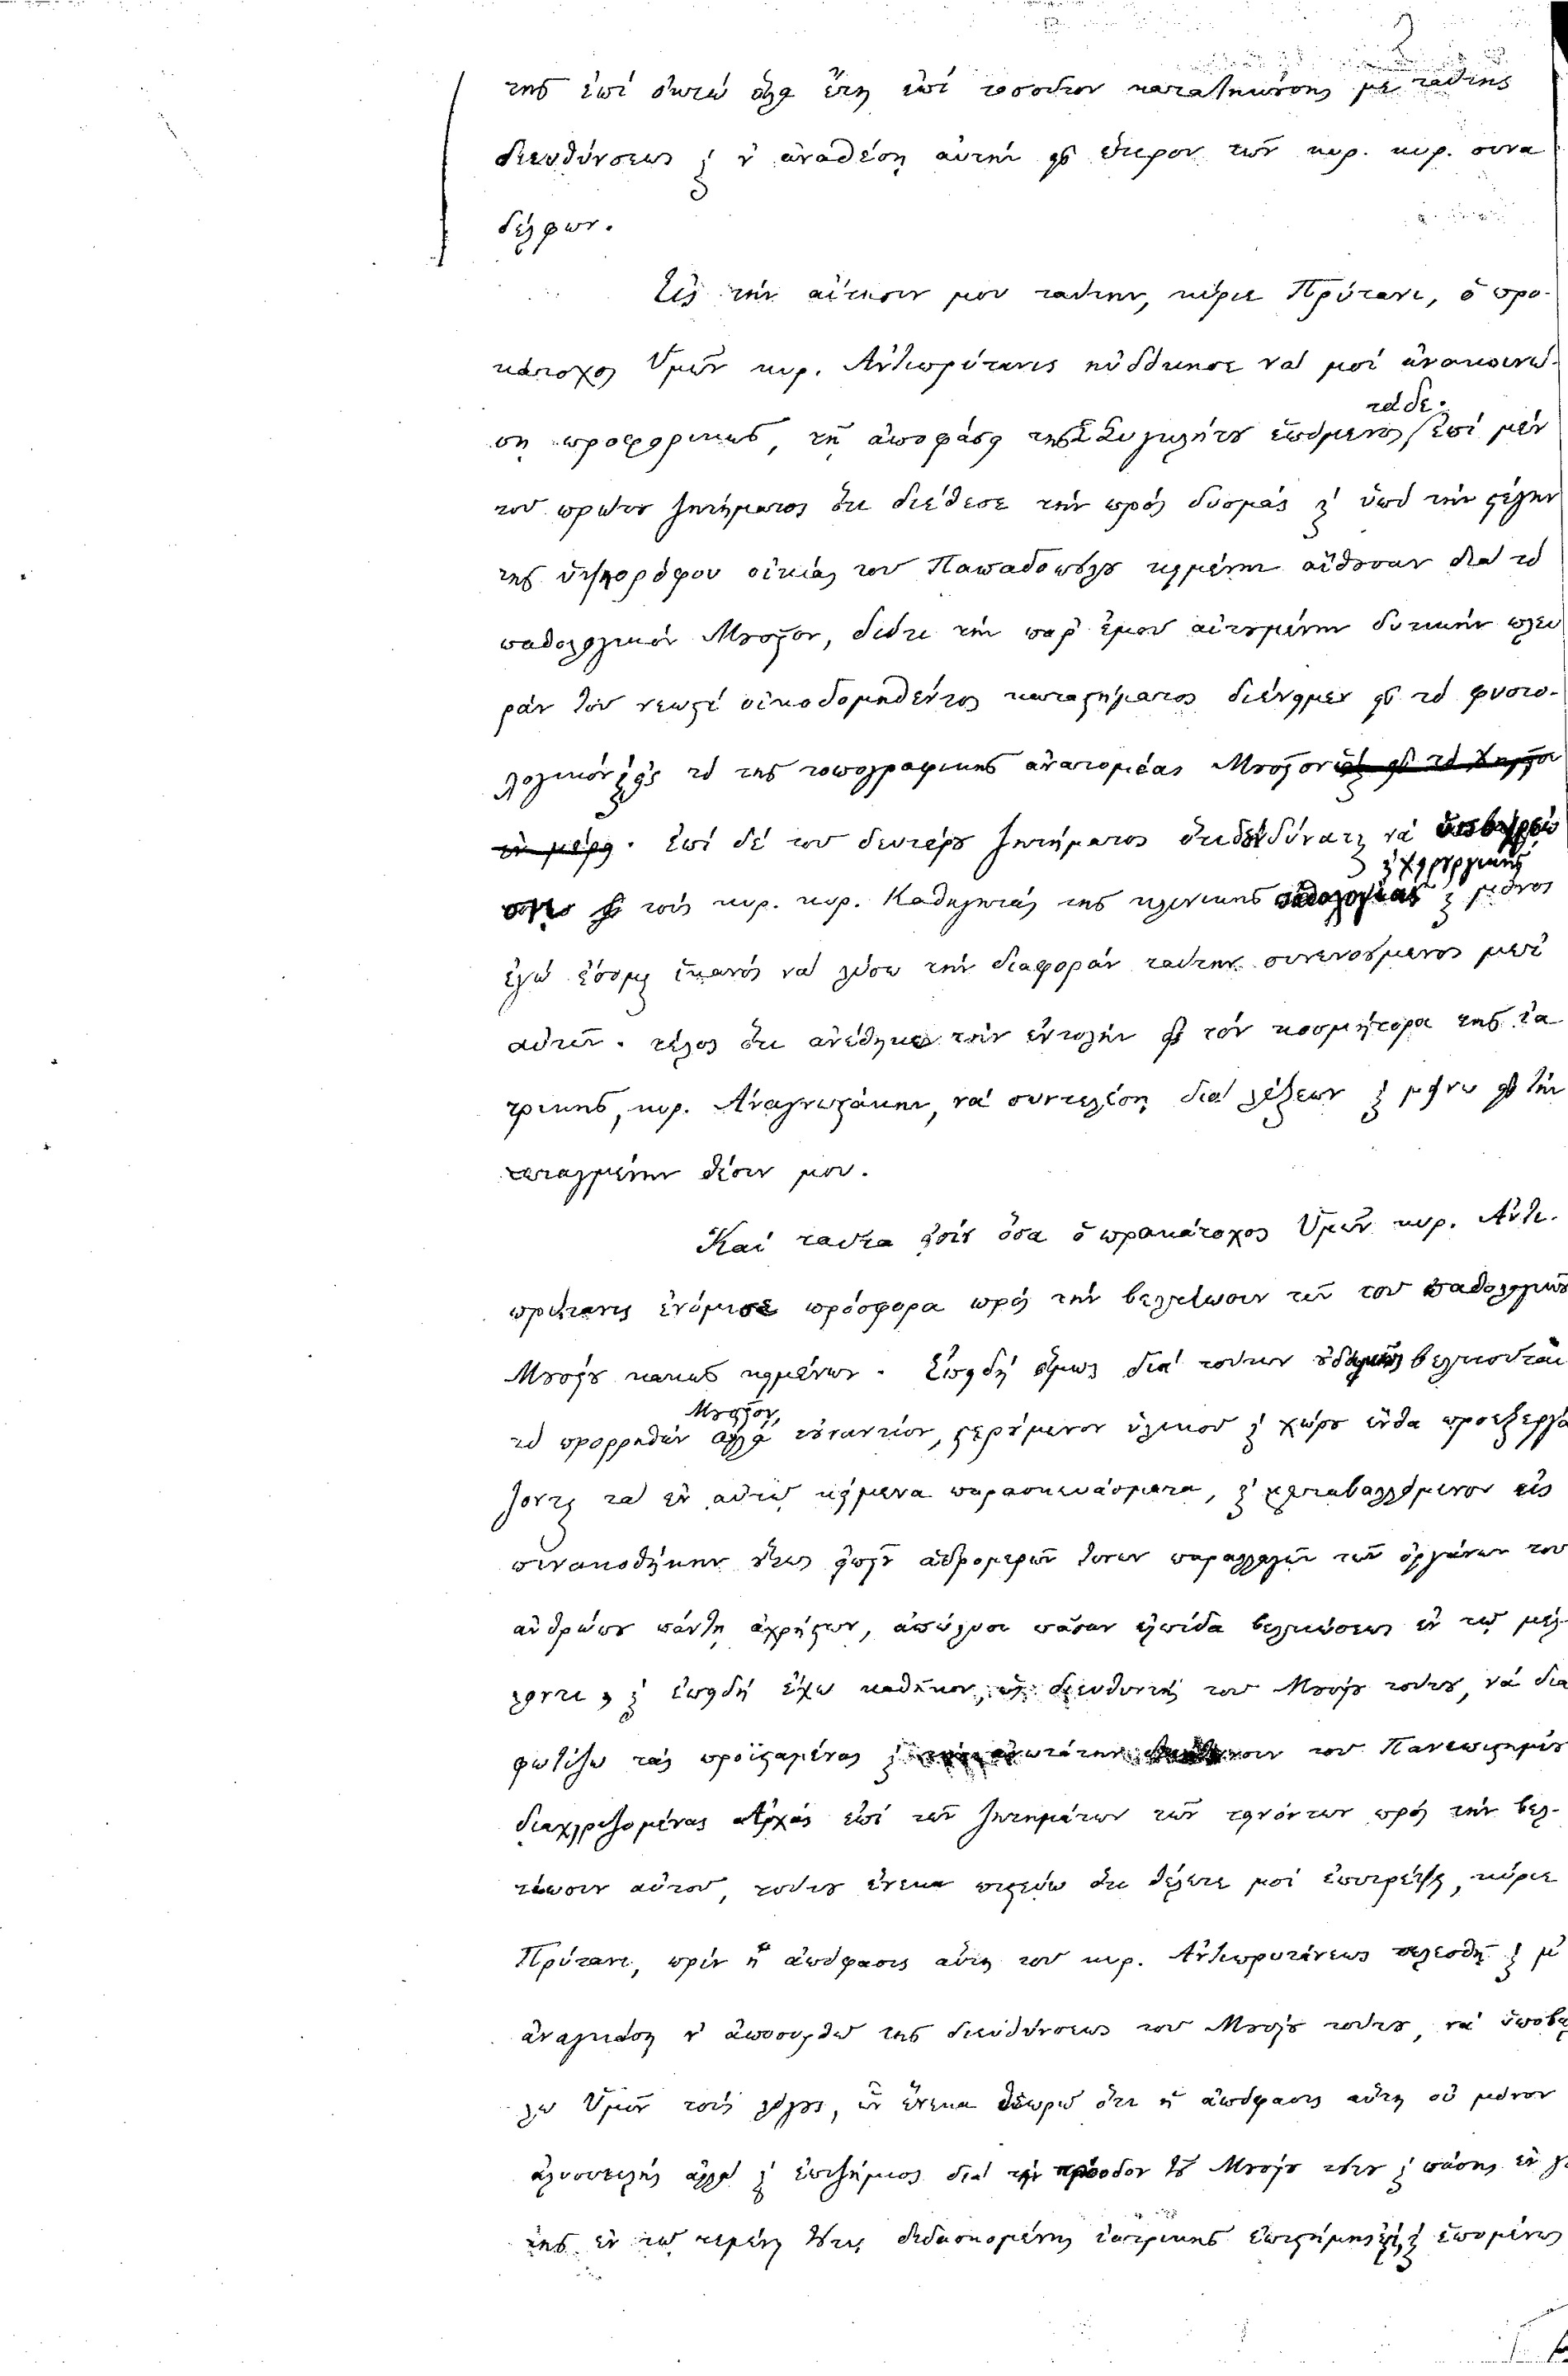 2
της ἐπί ὀκτώ ὅλα ἔτη ἐπί τοσοῦτον καταπιούσης με ταύτης
διευθύνσεως ϗ ν' ἀναθέσῃ αὐτήν εἰς ἕτερον τῶν κυρ. κυρ. συνα
δέλφων.
Εἰς τήν αἴτησιν μου ταύτην, κύριε Πρύτανι, ὁ προ-
κάτοχος Ὑμῶν κυρ. Ἀντιπρύτανις ηὐδόκησε νά μοί ἀνακοινώ-
τάδε.
σῃ προφορικῶς, τῇ ἀποφάσει της Συγκλήτου ἑπόμενος, Ἐπί μέν
του πρώτου ζητήματος ὅτι διέθεσε τήν πρός δυσμάς ϗ ὑπό τήν στέγην
της ὑψηορόφου οἰκίας του Παπαδοπούλου κειμένην αἴθουσαν διά τό
παθολογικόν Μουσεῖον, διότι τήν παρ' ἐμοῦ αἰτουμένην δυτικήν πλευ
ράν του νεωστί οἰκοδομηθέντος καταστήματος διένειμεν εἰς τό φυσιο-
λογικόν ϗ εἰς τό της τοπογραφικης ἀνατομίας Μουσεῖον ϗ εἰς τό Χημεῖον
ἐν μέρει. Ἐπί δέ του δευτέρου ζητήματος ὅτι δέν δύναται νά
εἰς τούς κυρ. κυρ. Καθηγητάς της κλινικης παθολογίας ϗ χειρουργικῆς ϗ μόνος
ἐγώ ἔσομαι ἱκανός νά λύσω την διαφοράν ταύτην συνεννούμενος μετ'
αὐτῶν. τέλος ὅτι ἀνέθηκε τήν ἐντολήν εἰς τόν κοσμήτορα της ἰα
τρικης, κυρ. Ἀναγνωστάκην, νά συντελέσῃ διά λέξεων ϗ μείνω εἰς τήν
τεταγμένην θέσιν μου.
Καί ταῦτα εἰσίν ὅσα ὁ προκάτοχος Ὑμῶν κυρ. Ἀντι-
πρύτανις ἐνόμισε πρόσφορα πρός τήν βελτίωσιν τῶν του παθολογικοῦ
Μουσείου κακως κειμένων. Ἐπειδή ὅμως διά τούτων οὐδαμῶς βελτιοῦται
Μουσεῖον,
τό προρρηθέν ἀλλά τοὐναντίον, στερούμενον ὑλικοῦ ϗ χώρου ἔνθα προεξεργά
ζονται τά ἐν αὐτῷ κείμενα παρασκευάσματα, ϗ μεταβαλλόμενον εἰς
πινακοθήκην οὕτως εἰπεῖν ἁδρομερῶν τινων παραλλαγῶν τῶν ὀργάνων του
ἀνθρώπου πάντῃ ἀχρήστων, ἀπώλεσε πᾶσαν ἐλπίδα βελτιώσεως ἐν τῷ μέλ-
λοντι, ϗ ἐπειδή ἔχω καθῆκον, ὡς διευθυντής του Μουσείου τούτου, νά δια
φωτίζω τάς προϊσταμένας ϗ τήν ἀνωτάτην διεύθυνσιν του Πανεπιστημίου
διαχειριζομένας Ἀρχάς ἐπί τῶν ζητημάτων τῶν τεινόντων πρός τήν βελ-
τίωσιν αὐτου, τούτου ἕνεκα πιστεύω ὅτι θέλετε μοί ἐπιτρέψει, κύριε
Πρύτανι, πρίν ἡ ἀπόφασις αὕτη του κυρ. Ἀντιπρυτάνεως τελεσθῇ ϗ μ'
ἀναγκάσῃ ν' ἀποσυρθῶ της διευθύνσεως του Μουσείου τούτου, νά ὑποβάλ
λω Ὑμῖν τούς λόγους, ὧν ἕνεκα θεωρῶ ὅτι ἡ ἀπόφασις αὕτη οὐ μόνον
ἀλυσιτελής ἀλλά ϗ ἐπιζήμιος διά τήν πρόοδον τοῦ Μουσείου τούτου ϗ πάσης ἐν γέ
της ἐν τῷ τεμένει τούτῳ διδασκομένης ἰατρικης ἐπιστήμης ϗ ἑπομένως